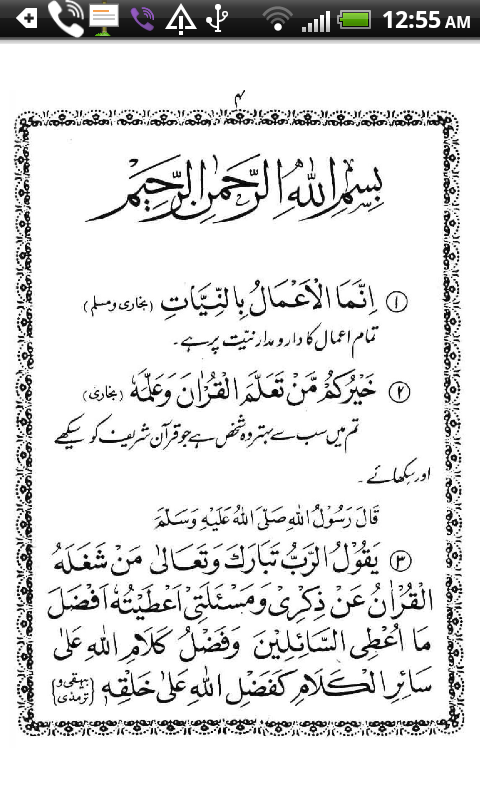 12:55 AM
۴
بِسْمِ اللهِ الرَّحْمٰنِ الرَّحِيْمِ
① اِنَّمَا الْاَعْمَالُ بِالنِّيَّاتِ (بخاری ومسلم)
تمام اعمال کا دارومدار نیّت پر ہے۔
② خَيْرُكُمْ مَّنْ تَعَلَّمَ الْقُرْاٰنَ وَعَلَّمَهٗ (بخاری)
تم میں سب سے بہتر وہ شخص ہے جو قرآن شریف کو سیکھے
اور سکھائے۔
قَالَ رَسُوْلُ اللهِ صَلَّى اللهُ عَلَيْهِ وَسَلَّمَ
③ يَقُوْلُ الرَّبُّ تَبَارَكَ وَتَعَالٰى مَنْ شَغَلَهُ
الْقُرْاٰنُ عَنْ ذِكْرِىْ وَمَسْئَلَتِىْ اَعْطَيْتُهٗ اَفْضَلَ
مَا اُعْطِى السَّائِلِيْنَ وَفَضْلُ كَلَامِ اللهِ عَلٰى
سَائِرِ الْكَلَامِ كَفَضْلِ اللهِ عَلٰى خَلْقِهٖ (بیہقی و ترمذی)